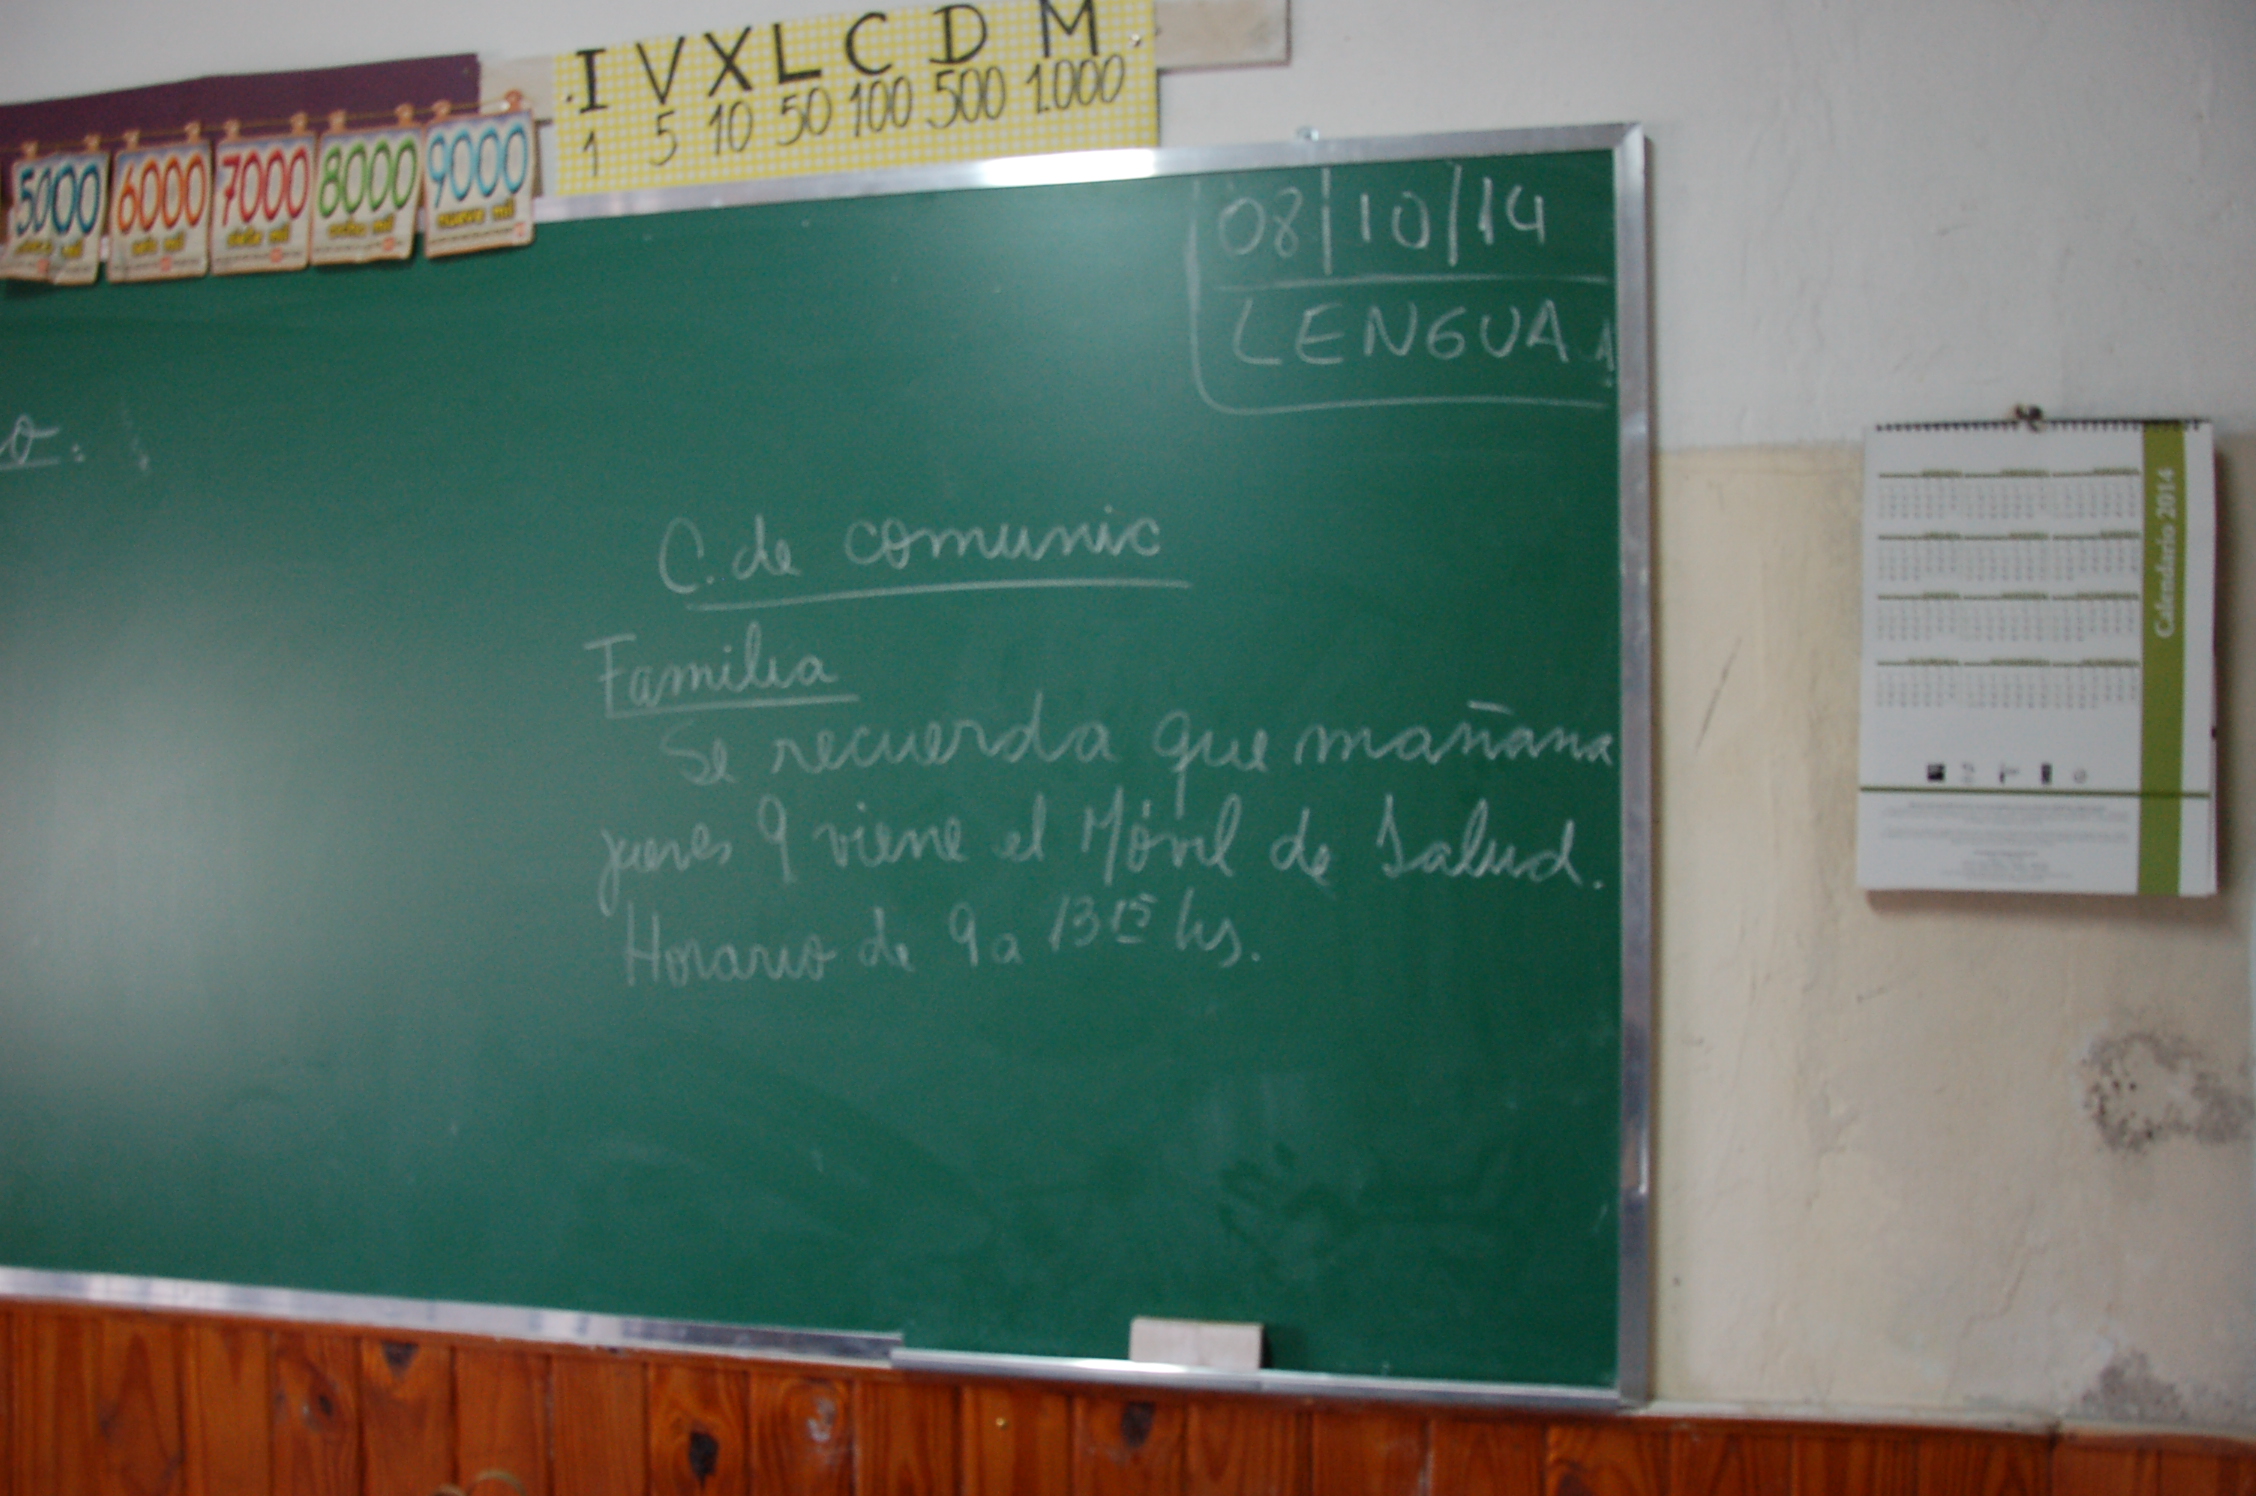 I V X L C D M
1 5 10 50 100 500 1.000
5000 6000 7000 8000 9000
mil seis mil siete mil ocho mil nueve mil
08/10/14
LENGUA
C. de comunic
Familia
Se recuerda que mañana
jueves 9 viene el Móvil de Salud.
Horario de 9 a 13 15 hs.
Calendario 2014